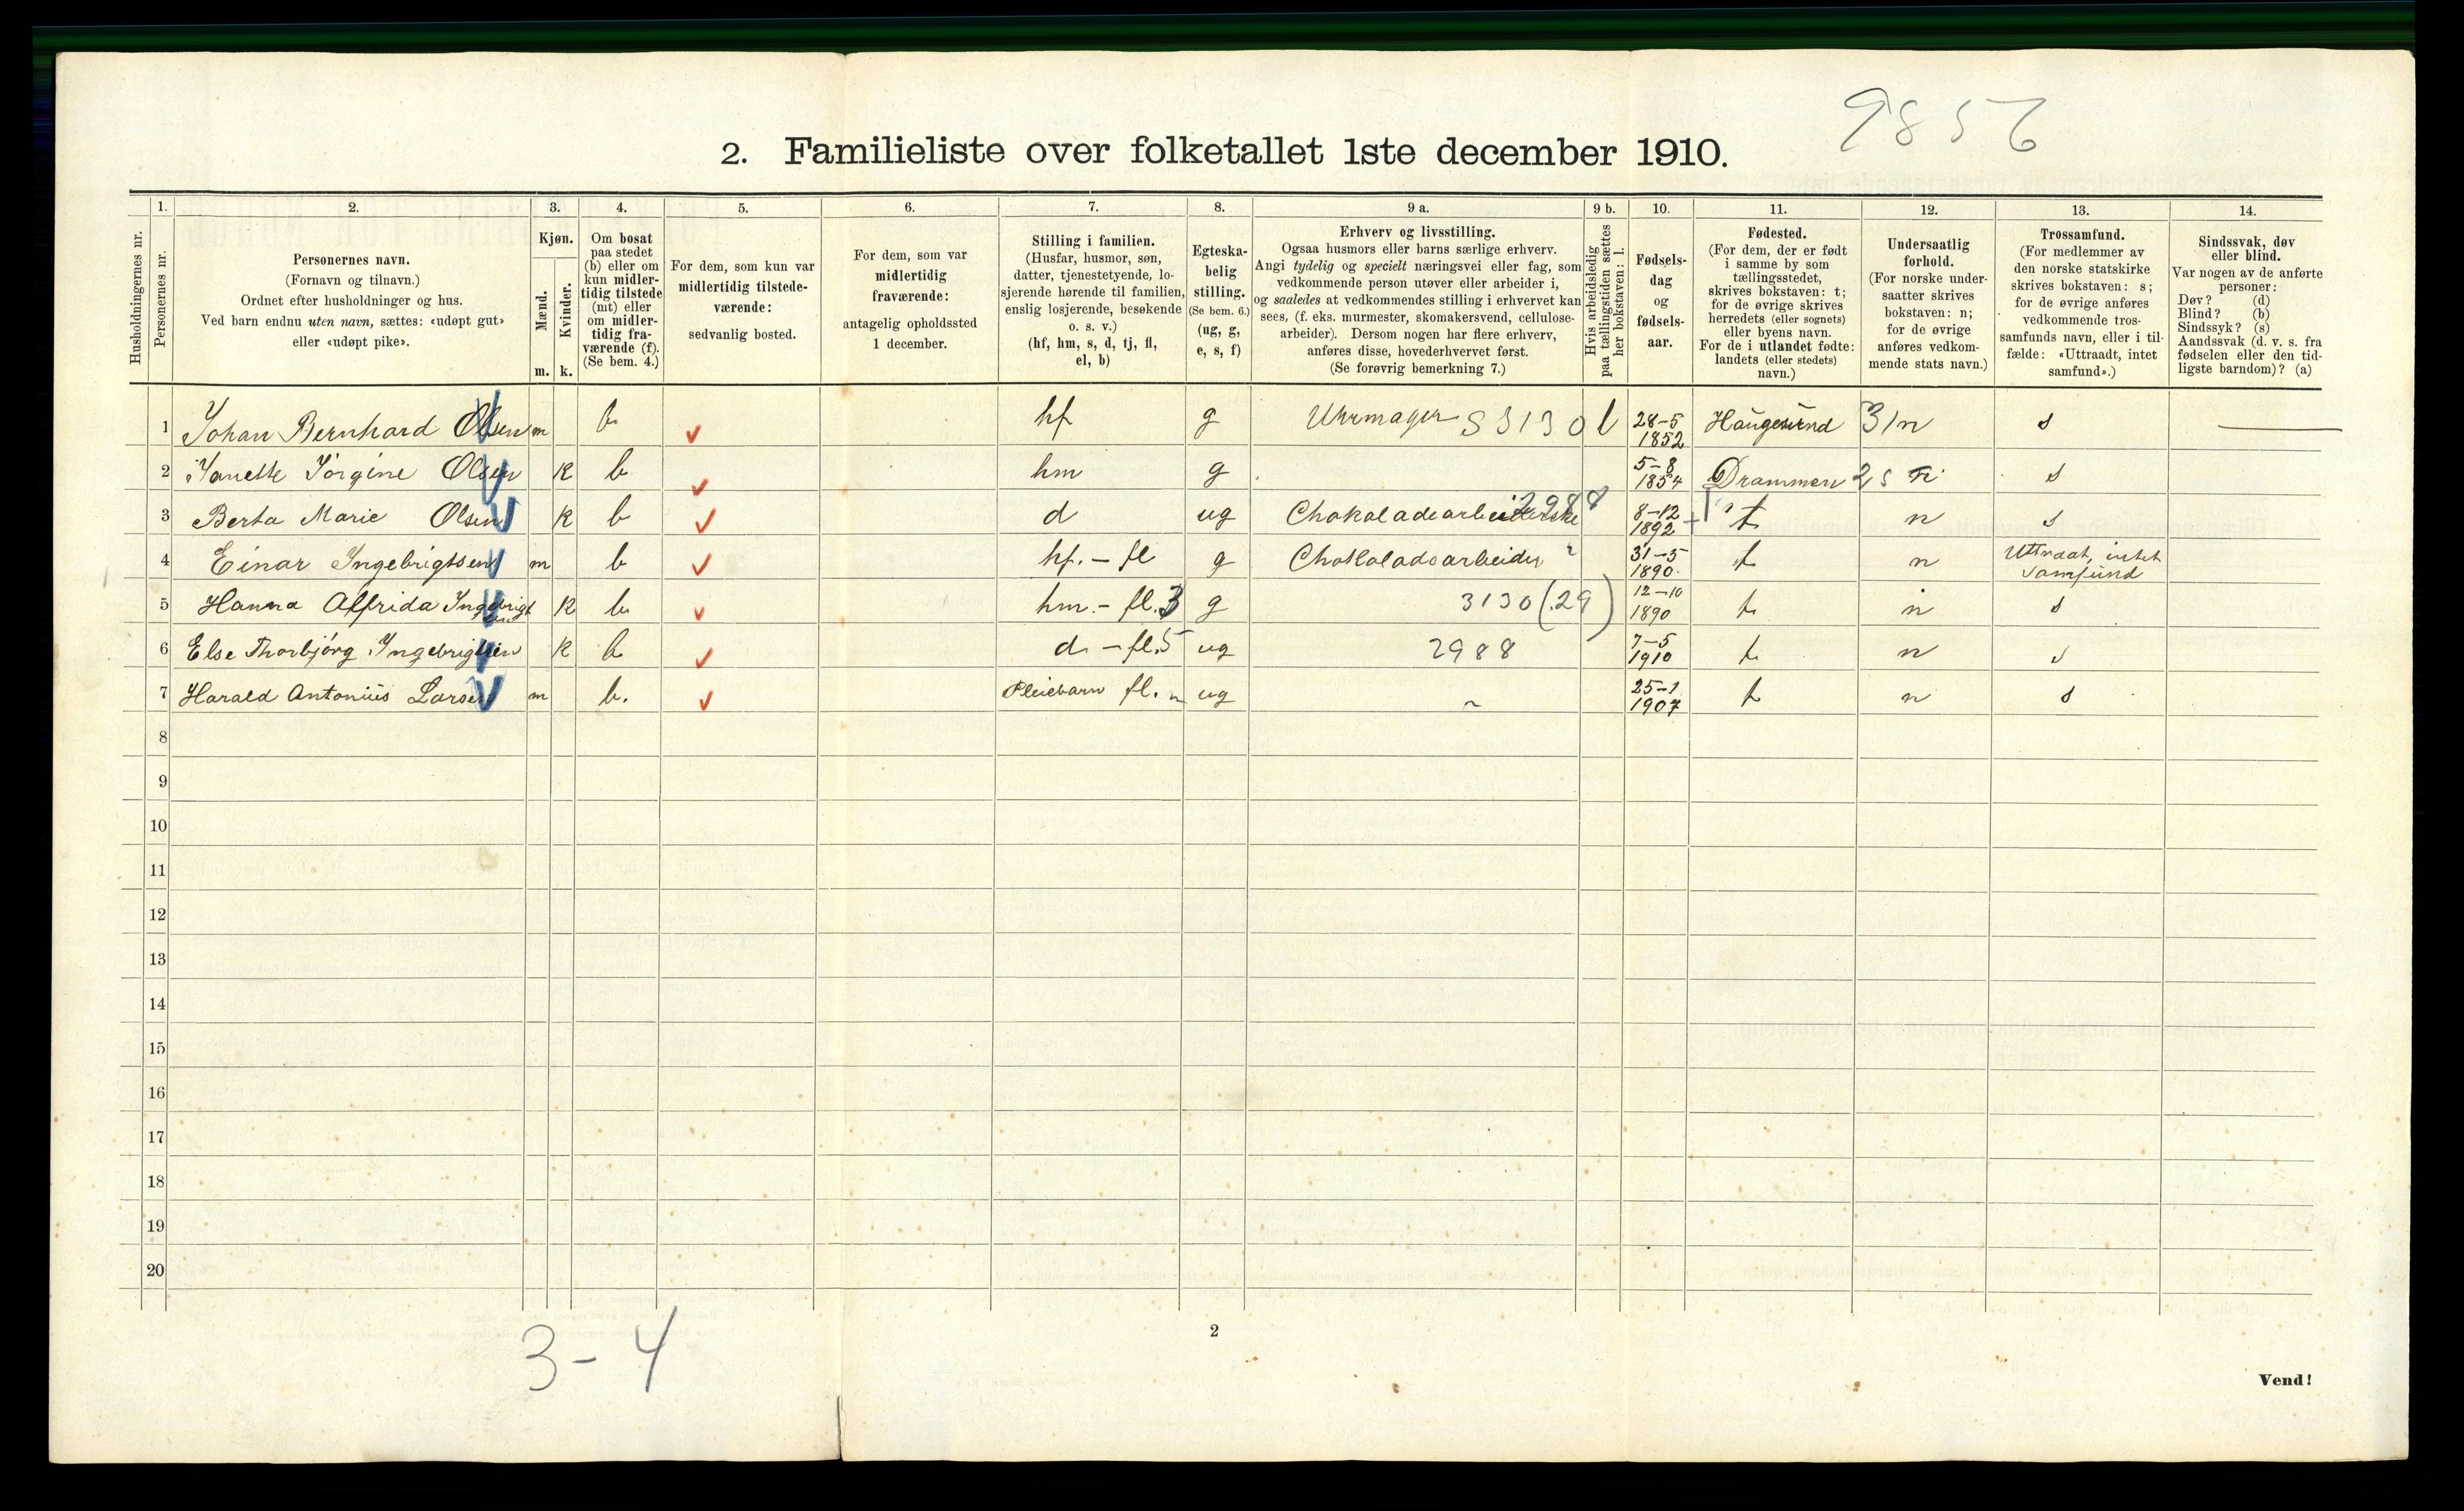 9856
2. Familieliste over folketallet 1ste december 1910.
1. 2. 3. 4. 5. 6. 7. 8. 9 a. 9 b. 10. 11. 12. 13. 14.
Husholdningernes nr.
Personernes nr.
Personernes navn.
(Fornavn og tilnavn.)
Ordnet efter husholdninger og hus.
Ved barn endnu uten navn, sættes: «udøpt gut»
eller «udøpt pike».
Kjøn.
Mænd.
Kvinder.
m. k.
Om bosat
paa stedet
(b) eller om
kun midler-
tidig tilstede
(mt) eller
om midler-
tidig fra-
værende (f).
(Se bem. 4.)
For dem, som kun var
midlertidig tilstede-
værende:
sedvanlig bosted.
For dem, som var
midlertidig
fraværende:
antagelig opholdssted
1 december.
Stilling i familien.
(Husfar, husmor, søn,
datter, tjenestetyende, lo-
sjerende hørende til familien,
enslig losjerende, besøkende
o. s. v.)
(hf, hm, s, d, tj, fl,
el, b)
Egteska-
belig
stilling.
(Se bem. 6.)
(ug, g,
e, s, f)
Erhverv og livsstilling.
Ogsaa husmors eller barns særlige erhverv.
Angi tydelig og specielt næringsvei eller fag, som
vedkommende person utøver eller arbeider i,
og saaledes at vedkommendes stilling i erhvervet kan
sees, (f. eks. murmester, skomakersvend, cellulose-
arbeider). Dersom nogen har flere erhverv,
anføres disse, hovederhvervet først.
(Se forøvrig bemerkning 7.)
Hvis arbeidsledig
paa tællingstiden sættes
her bokstaven: l.
Fødsels-
dag
og
fødsels-
aar.
Fødested.
(For dem, der er født
i samme by som
tællingsstedet,
skrives bokstaven: t;
for de øvrige skrives
herredets (eller sognets)
eller byens navn.
For de i utlandet fødte:
landets (eller stedets)
navn.)
Undersaatlig
forhold.
(For norske under-
saatter skrives
bokstaven: n;
for de øvrige
anføres vedkom-
mende stats navn.)
Trossamfund.
(For medlemmer av
den norske statskirke
skrives bokstaven: s;
for de øvrige anføres
vedkommende tros-
samfunds navn, eller i til-
fælde: «Uttraadt, intet
samfund».)
Sindssvak, døv
eller blind.
Var nogen av de anførte
personer:
Døv? (d)
Blind? (b)
Sindssyk? (s)
Aandssvak (d. v. s. fra
fødselen eller den tid-
ligste barndom)? (a)
1 Johan Bernhard Olsen m b hf g Uhrmager S 3130 l 28-5 1852 Haugesund 31 n s —
2 Janette Jørgine Olsen K b hm g 5-8 1854 Drammen 25 n s
3 Berta Marie Olsen K b d ug Chokoladearbeiderske 2988 8-12 1892 t n s
4 Einar Ingebrigtsen m b hf. - fl g Chokoladearbeider 31-5 1890 t n Uttraat, intet samfund
5 Hanna Alfrida Ingebrigtsen K b hm. - fl. 3 g 3130 (29) 12-10 1890 t n s
6 Else Thorbjörg Ingebrigtsen K b d - fl. 5 ug 2988 7-5 1910 t n s
7 Harald Antonius Larsen m b. Pleiebarn fl. ug 25-1 1907 t n s
8
9
10
11
12
13
14
15
16
17
18
19
20
3-4
2
Vend!